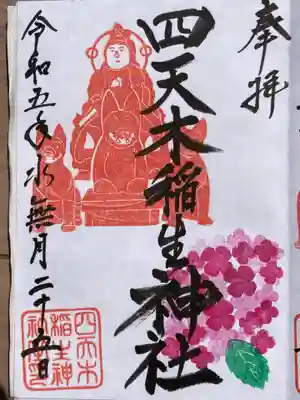 奉拝
四天木稲生神社
令和五年水無月二十五日
四天木
稲生神
社